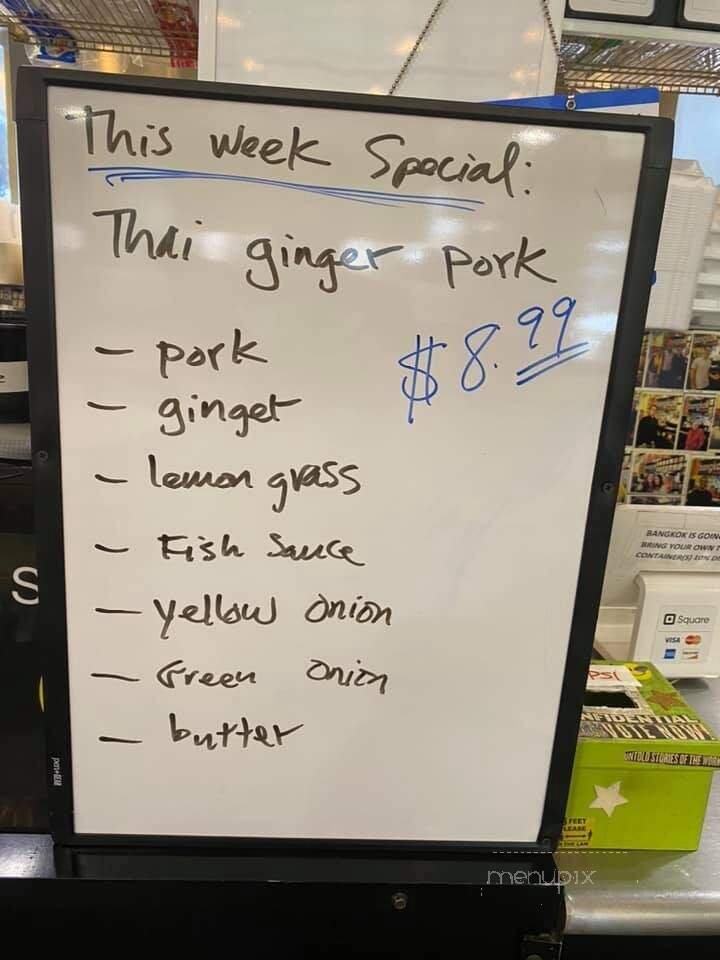 This week Special:
Thai ginger pork
$8.99
- pork
- ginger
- lemon grass
- Fish Sauce
- yellow onion
- Green onion
- butter
BANGKOK IS GOIN
BRING YOUR OWN
CONTAINER(S) 10% DI
Square
VISA
PSI
NFIDENTIAL
VOTE NOW
UNTOLD STORIES OF THE WORK
6 FEET
PLEASE
menupix